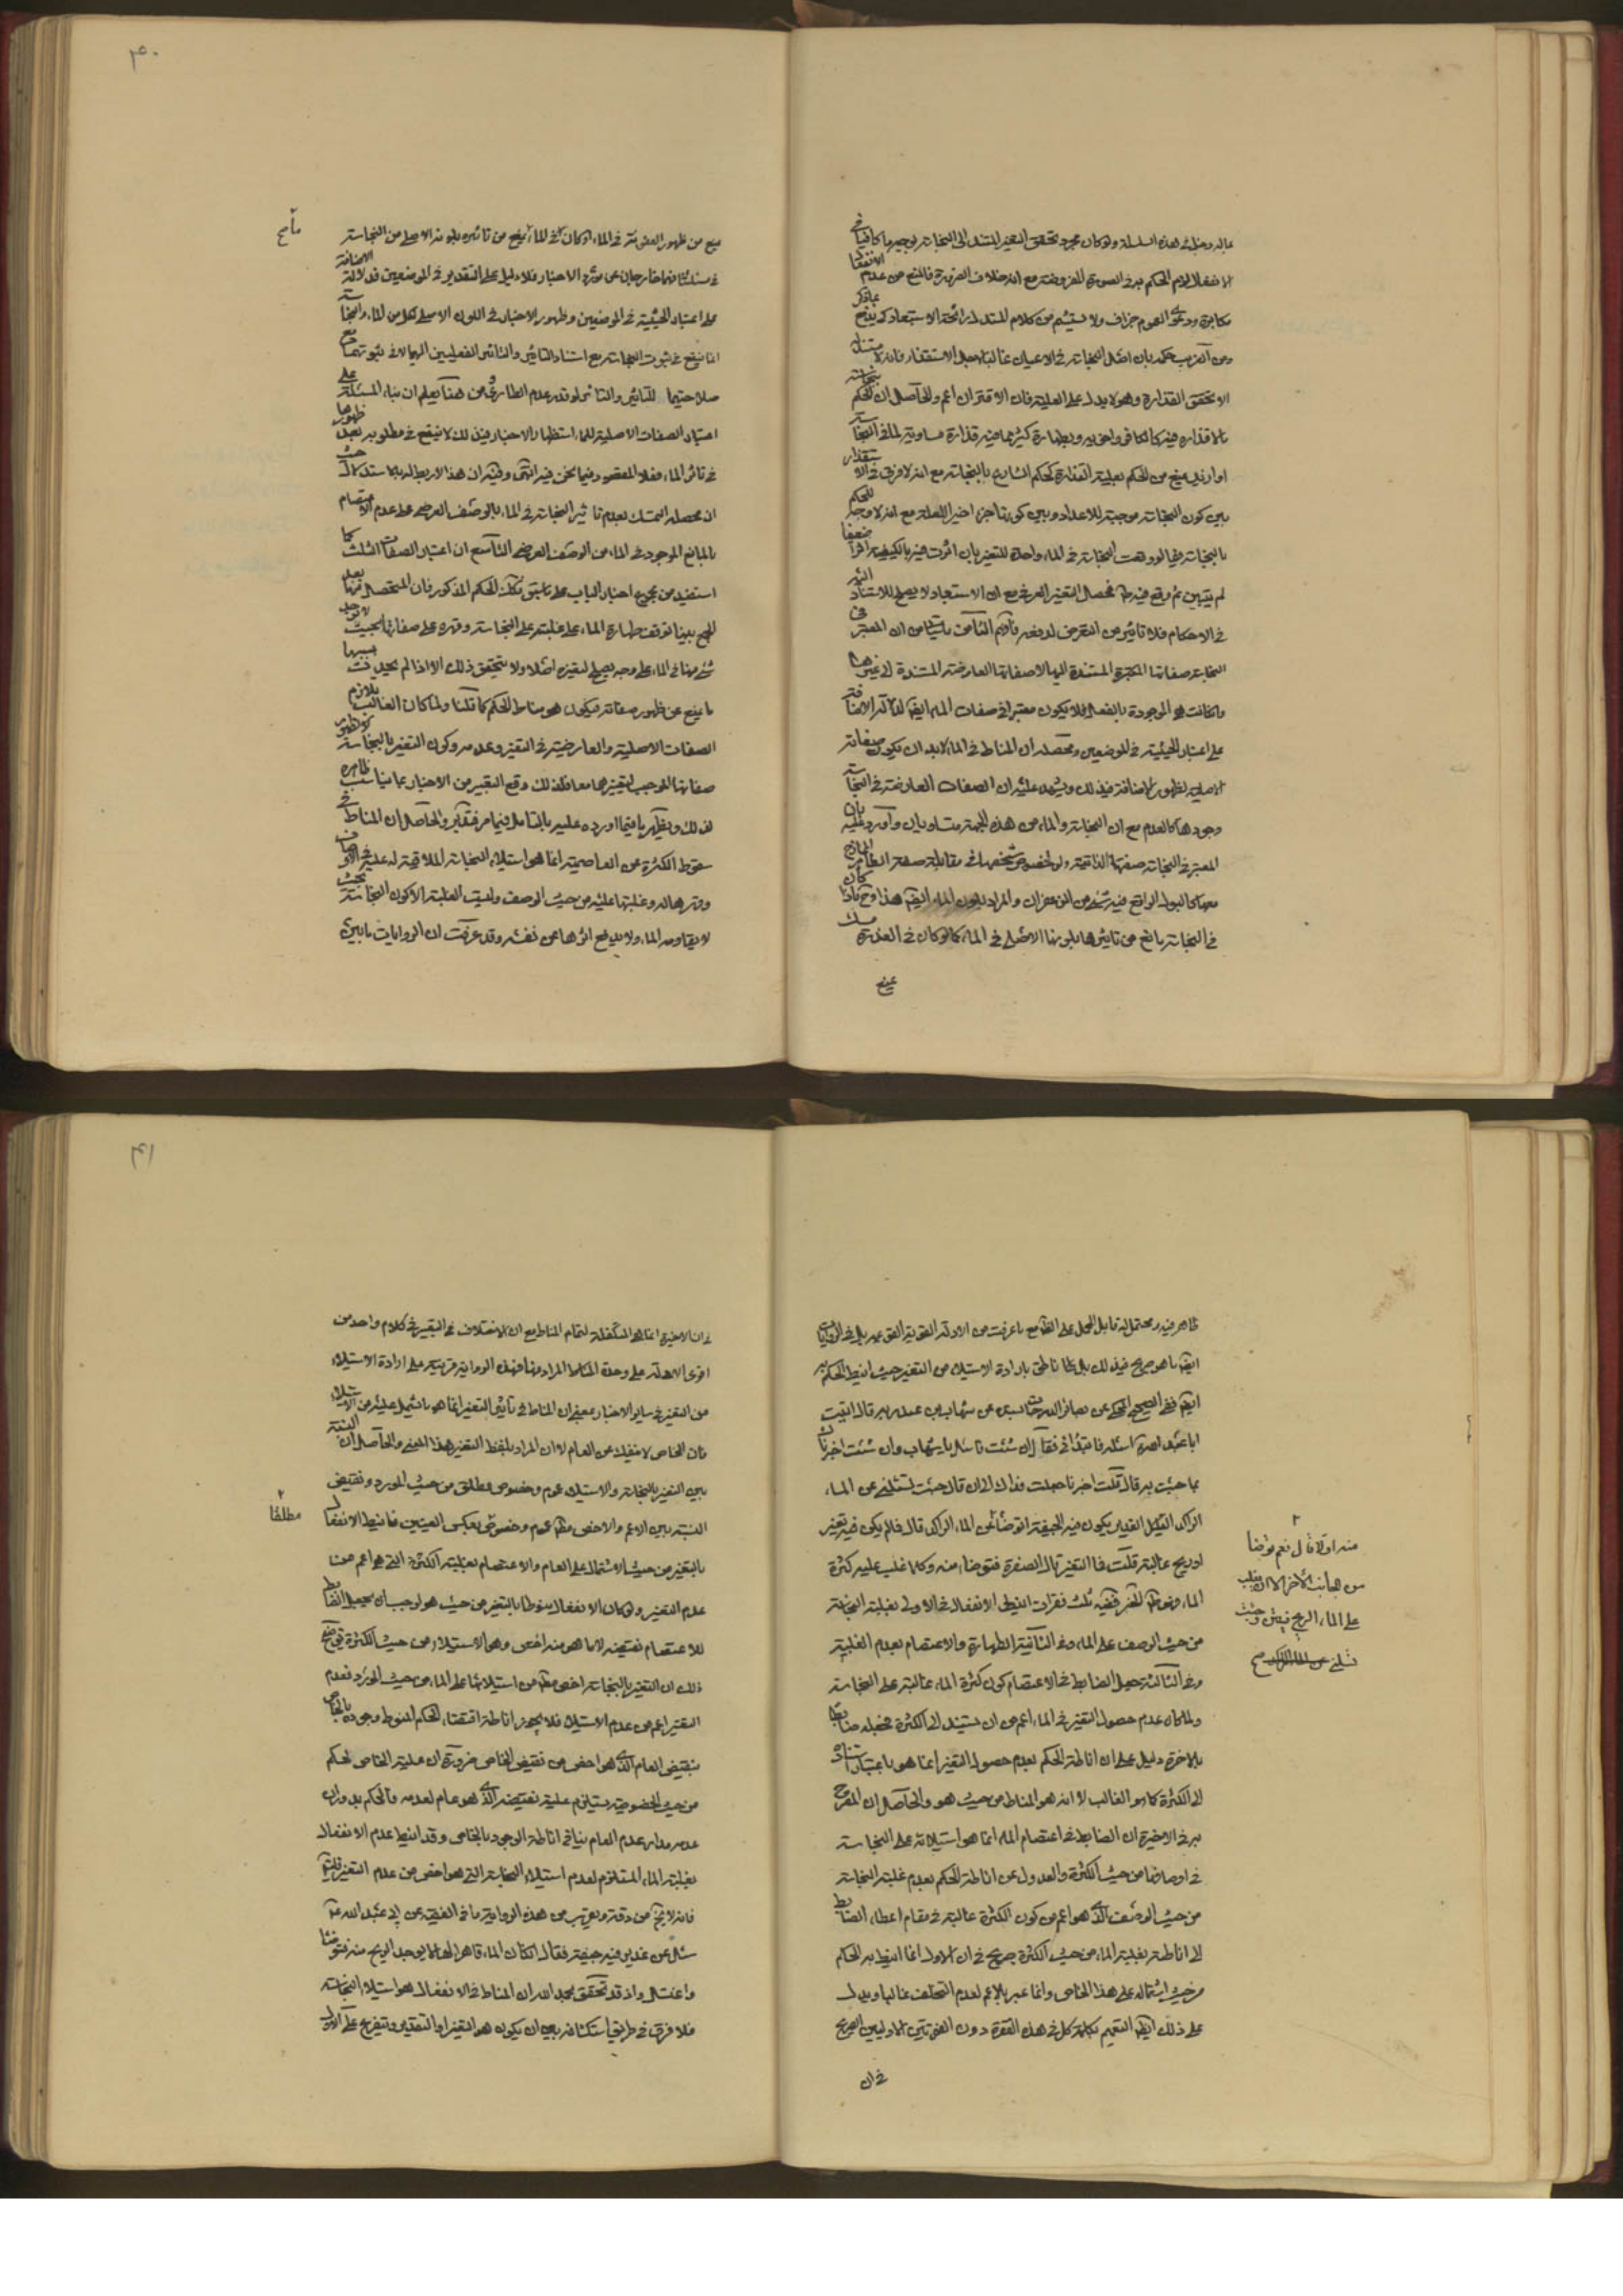 ٤٠
عاله وخلى لهذه السلسلة ولو كان مجرد تحقق التغير المستند الى النجاسة بوجه ما كافيا في
الانفعال لزم الحكم به في الصورة المفروضة مع انه خلاف الضرورة فالمنع من عدم
مكابرة ودعوى العموم جزاف ولا يستشم من كلام المستدل رائحة الاستبعاد كى يدفع
ومن الغريب حكمه بان اصل النجاسة في الاعيان غالبا لاجل الاستقذار فانه لا
الا تحقق القذارة وهو لا يدل على العلية فان الاقتران اعم والحاصل ان الحكم
بالاقذارة فيه كالكافر واخويه وبطهارة كثير مما فيه قذارة مساوية لما في النجاسة
او ازيد يمنع من الحكم بعلية القذارة لحكم الشارع بالنجاسة مع انه لا فرق في الاستقذار
بين كون النجاسة موجبة للاعداد وبين كونها جزء اخيرا للعلة مع انه لا وجه للحكم
بالنجاسة فيما لو وقعت النجاسة في الماء واحدة للتغير بان اثرت فيه بالكيفية اثرا ضعيفا
لم يتبين ثم وقع فيه طاهر فحصل التغير العرفي مع ان الاستبعاد لا يصلح للاستناد اليه
في الاحكام فلا تاثير من التعرض لدفعه فافهم الثامن ما يتساس ان المعتبر في
النجاسة صفاتها الكبرى المستندة اليها لا صفاتها العارضة المستندة الى غيرها
وان كانت هي الموجودة بالفعل فلا يكون معتبرا في صفات الماء ايضا لدلالة الاضافة
على اعتبار الحيثية في الموضعين ومحصله ان المناط في الماء لا بد ان يكون صفاته
الاصلية لظهور الاضافة في ذلك ويشهد عليه ان الصفات العارضة في النجاسة
وجودها كالعدم مع ان النجاسة والماء من هذه الجهة متساويان واورد عليه بان
المعتبر في النجاسة صفتها الذاتية ولو لخصوص شخصها في مقابلة صفة الطاهر المازج
معها كالبول الواقع فيه شيء من الزعفران والمراد بلون الماء ايضا هذا وح فاذا كان
في النجاسة مانع من تاثيرها بلونها الاصلي في الماء كما لو كان في العذرة مسك
يمنع
يمنع من ظهور العفونة في الماء او كان في الماء ما يمنع من تاثيره بلونه الاصلي من النجاسة
في مسئلتنا فهما خارجان عن مورد الاخبار فلا دليل على التقدير في الموضعين فدلالة الاضافة
على اعتبار الحيثية في الموضعين وظهور الاخبار في اللون الاصلي لكل من الماء والنجاسة
انما ينفع في ثبوت النجاسة مع استناد التاثير والتاثر الفعليين اليهما لا في ثبوتهما مع
صلاحيتهما للتاثير والتاثر لو قدر عدم الطارئ ومن هنا يعلم ان بناء المسئلة على
اعتبار الصفات الاصلية للماء استظهارا لاخبار في ذلك لا ينفع في مطلوبه بعد ظهورها
في تاثر الماء فعلا المفقود فيما نحن فيه انتهى وفيه ان هذا لا ربط له بما استدل به حيث
ان محصله التمسك بعدم تاثير النجاسة في الماء بالوصف العرضي على عدم الاعتصام
بالمانع الموجود في الماء من الوصف العرضي التاسع ان اعتبار الصفات الثلث كما
استفيد من مجموع اخبار الباب على ما سبق تلك الحكم المذكور فان المتحصل منها بعد
الجمع بينها توقف طهارة الماء على غلبته على النجاسة وقهره على صفاتها بحيث لا يوجد
شيء منها في الماء على وجه يصلح لتغيره اصلا ولا يتحقق ذلك الا اذا لم يحدث فيه بسببها
ما يمنع عن ظهور صفاته فيكون هو مناط الحكم كما قلنا ولما كان الغالب تلازم
الصفات الاصلية والعارضية في التغير وعدمه وكون التغير بالنجاسة كظهور
صفاتها الموجب لتغيرهما معا فلذلك وقع التعبير من الاخبار بما يناسب ظاهره
لذلك ويظهر ما فيما اورده عليه بالتامل فيما مر فتدبر والحاصل ان المناط في
سقوط الكثرة عن العاصمية انما هو استيلاء النجاسة الملاقية له عليه في الاوصاف
وقهرها له وغلبتها عليه من حيث الوصف وليست الغلبة الا كون النجاسة بحيث
لا يقاومه الماء ولا يدفع اثرها عن نفسه وقد عرفت ان الروايات ما بين
ماء صح
٤١
ظاهر فيه ومحتمل له قابل للحمل على القاطع ما عرفت من الادلة القوية القوية بل في الروايات
ايضا ما هو صريح في ذلك بل ناطق بارادة الاستيلاء من التغير حيث انيط الحكم به
ايضا ففي الصحيح المحكي عن بصائر الدرجات بسنده عن شهاب بن عبد ربه قال اتيت
ابا عبد الله ع اسئله فابتدأني فقال ان شئت فاسئل يا شهاب وان شئت اخبرناك
بما جئت به قال قلت اخبرنا جعلت فداك الى ان قال جئت لتسئلني عن الماء
الراكد القليل الغدير يكون فيه الجيفة اتوضأ من الماء الراكد قال فما لم يكن فيه تغير
او ريح غالبة قلت فما التغير قال الصفرة فتوضا منه وكلما غلب عليه كثرة
الماء فهو طاهر الخبر ففيه ثلث فقرات انيط الانفعال في الاولى بغلبة النجاسة
من حيث الوصف على الماء وفي الثانية الطهارة والاعتصام بعدم الغلبة
وفي الثالثة جعل الضابط في الاعتصام كون كثرة الماء غالبة على النجاسة
ولما كان عدم حصول التغير في الماء اعم من ان يستند الى الكثرة فجعله ضابطا
بالاخرة دليل على ان اناطة الحكم بعدم حصول التغير انما هو باعتبار استناده
الى الكثرة كما هو الغالب لا انه هو المناط من حيث هو والحاصل ان المصرح
به في الاخيرة ان الضابط في اعتصام الماء انما هو استيلائه على النجاسة
في اوصافها من حيث الكثرة والعدول عن اناطة الحكم بعدم غلبة النجاسة
من حيث الوصف الذي هو اعم من كون الكثرة غالبة في مقام اعطاء الضابط
الى اناطته بغلبة الماء من حيث الكثرة صريح في ان الاول انما انيط به الحكم
من حيث اشتماله على هذا الخاص وانما عبر بالاعم لعدم التخلف غالبا ويدل
على ذلك ايضا التعميم بكلمة كل في هذه الفقرة دون الفقرتين الاوليين الصريح
في ان
منه اولا قال نعم توضا
من الجانب الاخر الا ان يغلب
على الماء الريح فينتن وجئت
تسئلني عن الماء الراكد صح
في ان الاخيرة انما هي المتكفلة لتمام المناط مع ان الاختلاف في التعبير في كلام واحد من
اقوى الادلة على وحدة المناط المراد منها فهذه الرواية قرينة على ارادة الاستيلاء
من التغير في سائر الاخبار بمعنى ان المناط في تاثير التغير انما هو ما اشتمل عليه من الاستيلاء
فان الخاص لا ينفك عن العام لا ان المراد بلفظ التغير هذا المعنى والحاصل ان النسبة
بين التغير بالنجاسة والاستيلاء عموم وخصوص مطلق من حيث المورد ونقيض
النسبة بين الاعم والاخص عموم وخصوص بعكس العينين فانيط الانفعال
بالتغير من حيث الاشتمال على العام والاعتصام بغلبة الكثرة التي هو اعم من
عدم التغير ولو كان الانفعال منوطا بالتغير من حيث هو لوجب ان يجعل الضابط
للاعتصام نقيضه لا ما هو منه اخص وهو الاستيلاء من حيث الكثرة توضيح
ذلك ان التغير بالنجاسة اخص من استيلائها على الماء من حيث المورد فعدم
التغير اعم من عدم الاستيلاء فلا يجوز اناطة انتفاء الحكم المنوط وجوده بالخاص
بنقيض العام الذي هو اخص من نقيض الخاص ضرورة ان علية الخاص لحكم
من حيث الخصوصية يستلزم علية نقيضه الذي هو عام لعدمه فالحكم بدوران
عدمه مدار عدم العام ينافي اناطة الوجود بالخاص وقد انيط عدم الانفعال
بغلبة الماء المستلزم لعدم استيلاء النجاسة التي هو اخص من عدم التغير فليتم
فانه لا يخ من دقة ويقرب من هذه الرواية ما في الفقيه عن ابي عبد الله ع
سئل عن غدير فيه جيفة فقال ان كان الماء قاهرا لها لا يوجد الريح منه فتوضا
واغتسل واذ قد تحقق بحمد الله ان المناط في الانفعال هو استيلاء النجاسة
فلا فرق في طريق استكشافه بين ان يكون هو التغير او التقدير ويتفرع على الاول
مطلقا